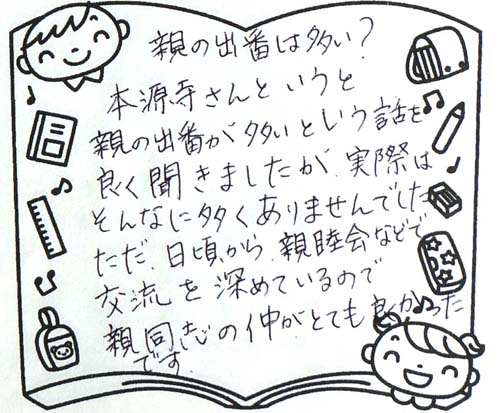 親の出番は多い?
本源寺さんというと
親の出番が多いという話を
良く聞きましたが、実際は
そんなに多くありませんでした
ただ、日頃から、親睦会などで
交流を深めているので
親同志の仲がとても良かった
です。